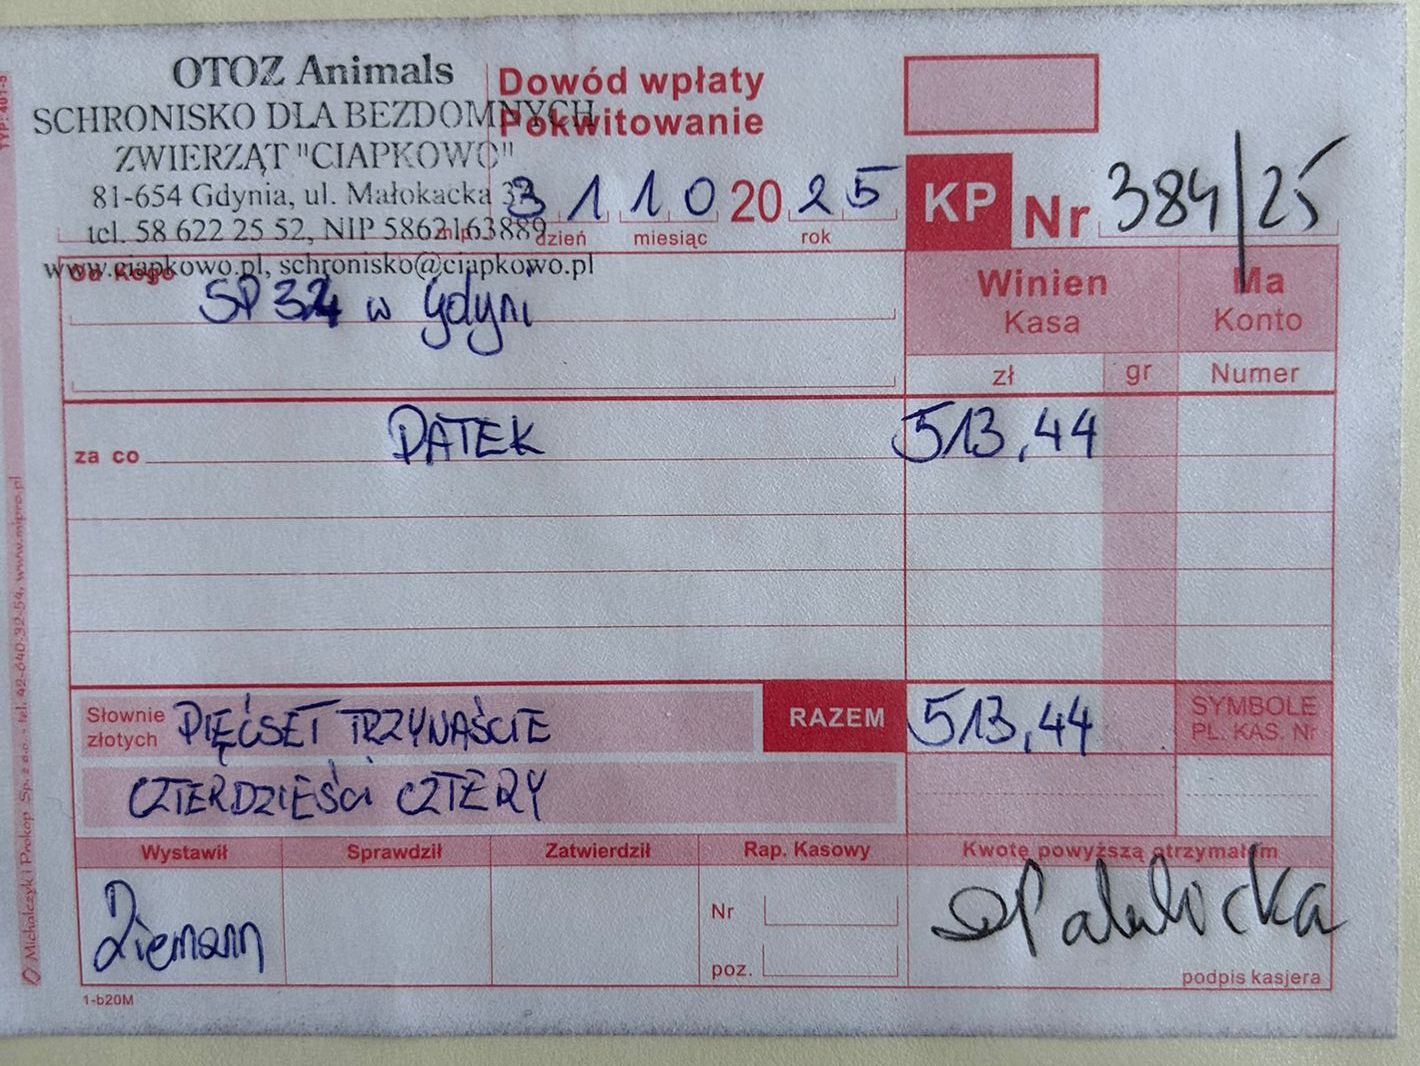 OTOZ Animals
SCHRONISKO DLA BEZDOMNYCH
ZWIERZĄT "CIAPKOWO"
81-654 Gdynia, ul. Małokacka
tel. 58 622 25 52, NIP 5862163889
www.ciapkowo.pl, schronisko@ciapkowo.pl
Dowód wpłaty
Pokwitowanie
3 1 1 0 20 2 5
dzień miesiąc rok
KP Nr 384/25
Od Kogo
SP 32 w Gdyni
Winien Ma
Kasa Konto
zł gr Numer
za co DATEK 513,44
Słownie złotych PIĘĆSET TRZYNAŚCIE RAZEM 513,44 SYMBOLE PL. KAS. Nr
CZTERDZIEŚCI CZTERY
Wystawił Sprawdził Zatwierdził Rap. Kasowy Kwotę powyższą otrzymałem
Ziemann
Nr
poz.
podpis kasjera
1-b20M
Michalczyk i Prokop Sp. z o.o. - tel. 42-640-32-54, www.mipro.pl
TYP: 401-5